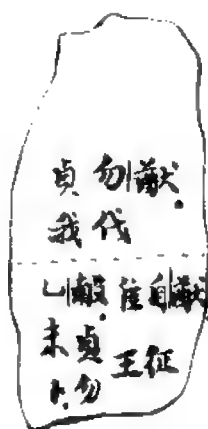 貞我
勿伐
猷
乙未卜
㱿貞勿
隹王
自征
猷